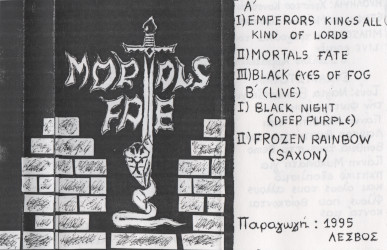 MORTALS
FATE
A'
I) EMPERORS KINGS ALL
KIND OF LORDS
II) MORTALS FATE
III) BLACK EYES OF FOG
B' (LIVE)
I) BLACK NIGHT
(DEEP PURPLE)
II) FROZEN RAINBOW
(SAXON)
Παραγωγή : 1995
ΛΕΣΒΟΣ